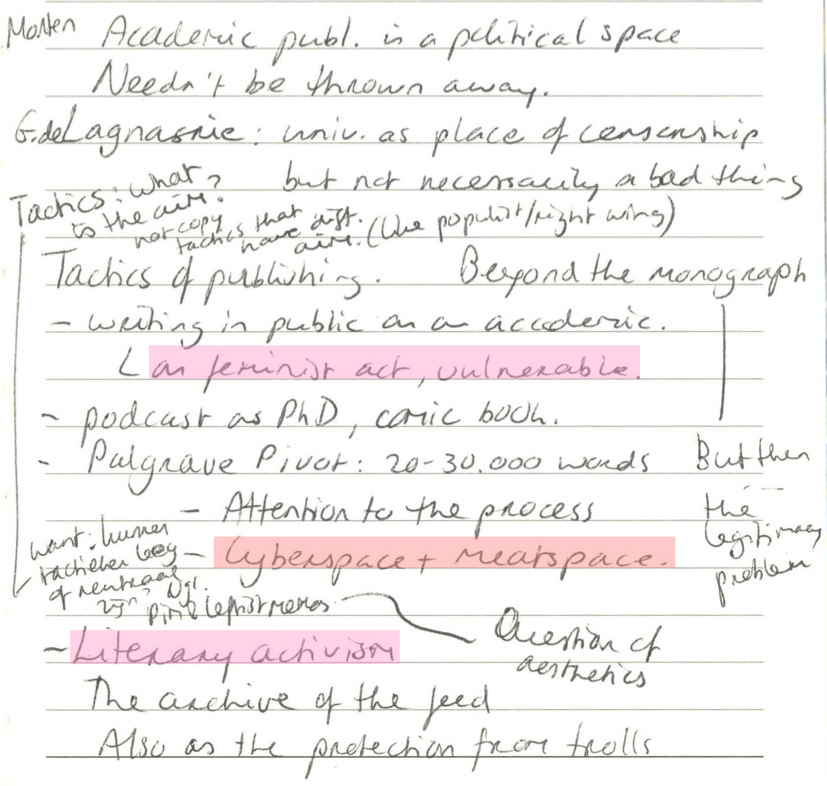 Morten Academic publ. is a political space
Needn't be thrown away.
G. de Lagnasnie: univ. as place of censorship
but not necessarily a bad thing
Tactics: what?
to the aim.
not copy
tactics that
have dift.
aim. (like populist/right wing)
Tactics of publishing. Beyond the monograph
- writing in public as an academic.
as feminist act, vulnerable.
- podcast as PhD, comic book.
- Palgrave Pivot: 20-30.000 words
But then
the
legitimacy
problem
- Attention to the process
- Cyberspace + Meatspace.
want: kunnen
of neutraal
leftist memes
Question of
aesthetics
- Literary activism
The archive of the feed
Also as the protection from trolls